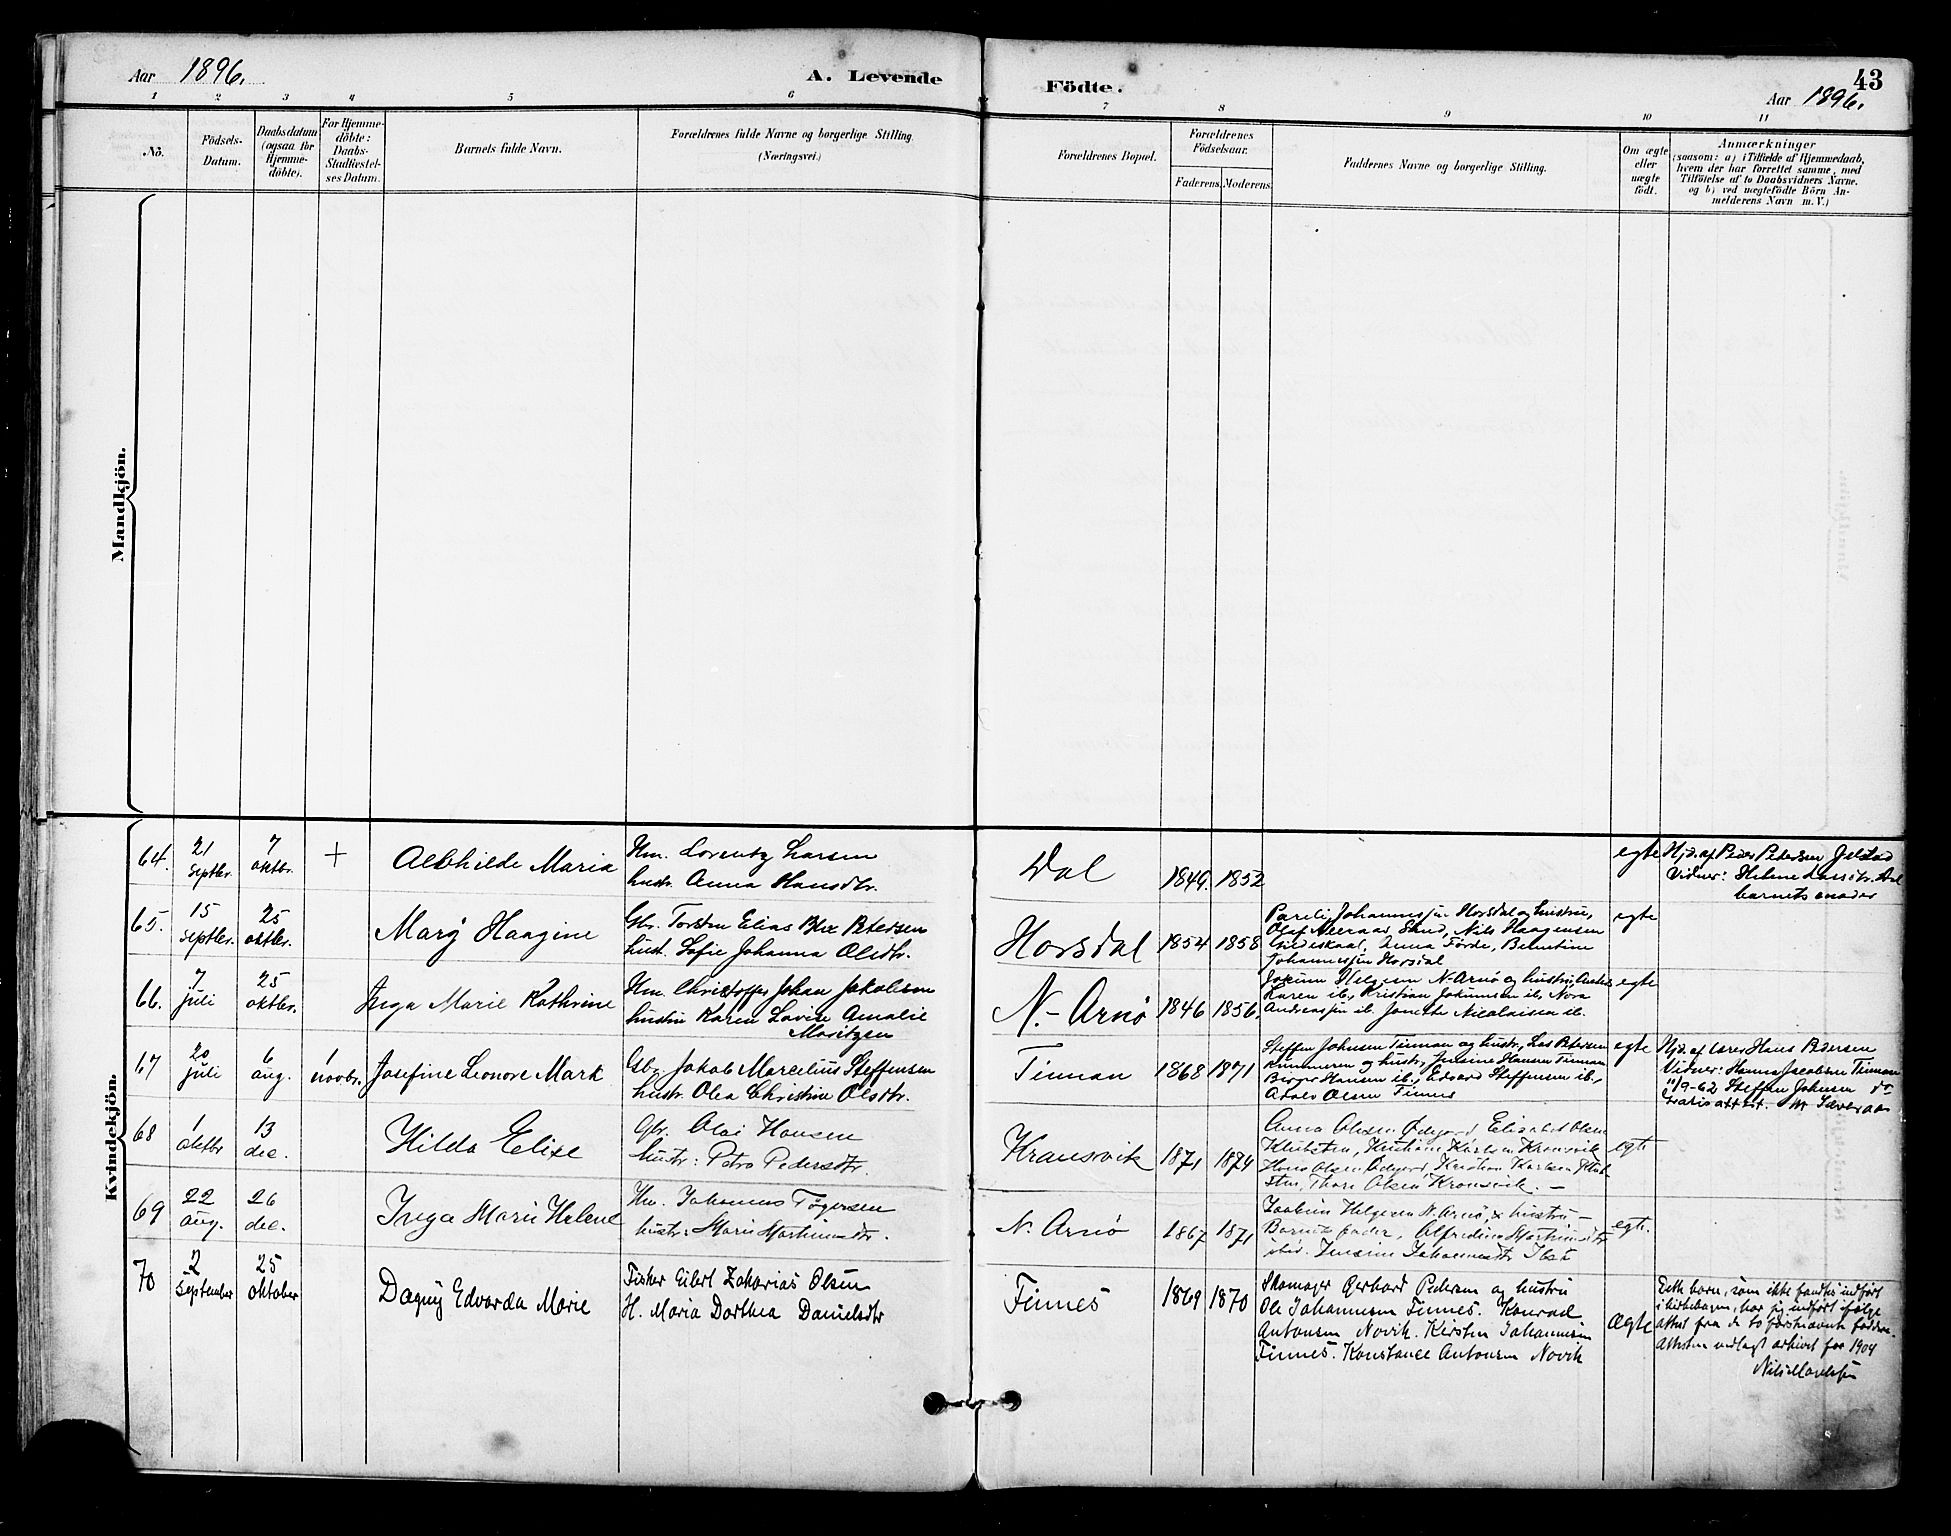 Aar 1896.
A. Levende
Födte.
43
Aar 1896.
1 2 3 4 5 6 7 8 9 10 11
No.
Födsels-
Datum.
Daabsdatum
(ogsaa for
Hjemme-
döbte).
For Hjemme-
döbte:
Daabs-
Stadfæstel-
ses Datum.
Barnets fulde Navn.
Forældrenes fulde Navne og borgerlige Stilling.
(Næringsvei.)
Forældrenes Bopæl.
Forældrenes
Födselsaar.
Faderens. Moderens.
Faddernes Navne og borgerlige Stilling.
Om ægte
eller
uægte
födt.
Anmærkninger
(saasom: a) i Tilfælde af Hjemmedaab,
hvem der har forrettet samme, med
Tilföielse af to Daabsvidners Navne.
og b) ved uægtefödte Börn An-
melderens Navn m. V.)
Mandkjön.
Kvindekjön.
64. 21 Septbr. 7 oktbr. + Maria
Hm. Lorentz Larsen
hustr. Anna Hansdtr.
Dal 1849. 1852 egte
Hjd. af Peder Petersen Jelstad
Vidner: Helene
barnets moder
65. 15 septbr. 25 oktbr. Mary Haagine
Gbr. Torsten Elias Blix Petersen
hust. Sofie Johanna Olsdtr.
Horsdal 1854 1858
Johannesen Horsdal og hustru,
Olaf Sund, Nils Haagensen
Gildeskaal, Anna Förde, Berntine
Johannessen Horsdal
egte
66. 7 juli 25 oktbr. Inga Marie Kathrine
Hm. Christoffer Johan Jakobsen
hustru Karen Lovise Amalie
Moritzen
N.-Arnö 1846 1856.
Jokum Helgesen N-Arnö og hustru,
Karen ib., Kristian Johannsen ib. Nora
Andreassen ib. Janette Nicolaisen ib.
egte
67 20 juli 6 aug. 1 novbr. Josefine Leonore Mark
Gbr. Jakob Marcelius Steffensen
hustr. Olea Christine Olsdtr.
Finnan 1868 1871
Steffen Johnsen Finnan og hustr.,
og hustr., Jensine Hansen Finnan
Birger Hansen ib., Edvard Steffensen ib.,
Olsen Finnes
egte
Hjd. af lærer Hans Pedersen
Vidner: Hanna Jacobsen Finnan
Steffen Johnsen do
68 1 oktbr 13 dec. Hilda Elise
Gbr. Olai Hansen
hustr: Petra Pedersdtr.
Kransvik 1871 1874
Anna Olsen Ødegard Elisabet Olsen
Kristiane Karlsen Kransvik
Hans Olsen Ødegard, Kristian Karlsen
Thore Olsen Kransvik. –
egte
69 22 aug. 26 dec. Inga Marie Helene
Hm. Johannes Tögersen
hustr: Marie Martinusdtr.
N. Arnö 1867 1871
Helgesen N. Arnö, & hustru –
Barnets fader, Alfredine
egte.
70 2 September 25 oktober Dagny Edvarda Marie
Fisker Eilert Zakarias Olsen
H. Maria Dorthea Danielsdtr
Finnes 1869 1870
Skomager Gerhard Pedersen og hustru
Ole Johannesen Finnes. Konrad
Antonsen Novik. Kirsten Johannesen
Finnes. Konstance Antonsen Novik
Ægte
Dette barn, som ikke fandtes indfört
i kirkebogen, har jeg indfört ifølge
attest fra de to förstnævnte faddere.
Attesten vedlagt arkivet for 1904